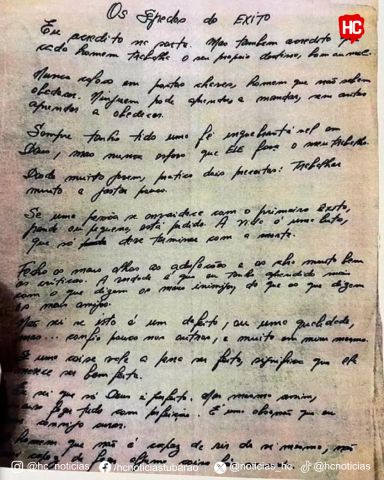 HC
Os Segredos do EXITO
Eu acredito na sorte. Mas também acredito que
cada homem trabalha o seu próprio destino, bom ou mal.
Nunca coloco em postos chaves, homem que não sabem
obedecer. Ninguem pode aprender a mandar, sem antes
aprender a obedecer.
Sempre tenho tido uma fé inquebrantável em
Deus, mas nunca espero que ELE faça o meu trabalho.
Desde muito jovem, pratico dois preceitos: Trabalhar
muito e gastar pouco.
Se uma pessoa se envaidece com o primeiro êxito,
grande ou pequeno, está perdido. A vida é uma luta,
que só deve terminar com a morte.
Fecho os meus olhos as adulações e os abro muito bem
as críticas. A verdade é que eu tenho aprendido mais
com o que dizem os meus inimigos, do que os que dizem
os meus amigos.
Não sei se isto é um defeito, ou uma qualidade,
mas... confio pouco nos outros, e muito em mim mesmo.
uma coisa vale a pena ser feita, significa que ela
merece ser bem feita.
sei que só Deus é perfeito. Mas mesmo assim,
faço tudo com perfeição. E uma obsessão que eu
comigo
homem que não é capaz de rir de si mesmo, não
é capaz de
@hc_noticias /hcnoticiastubarao @noticias_hc @hcnoticias